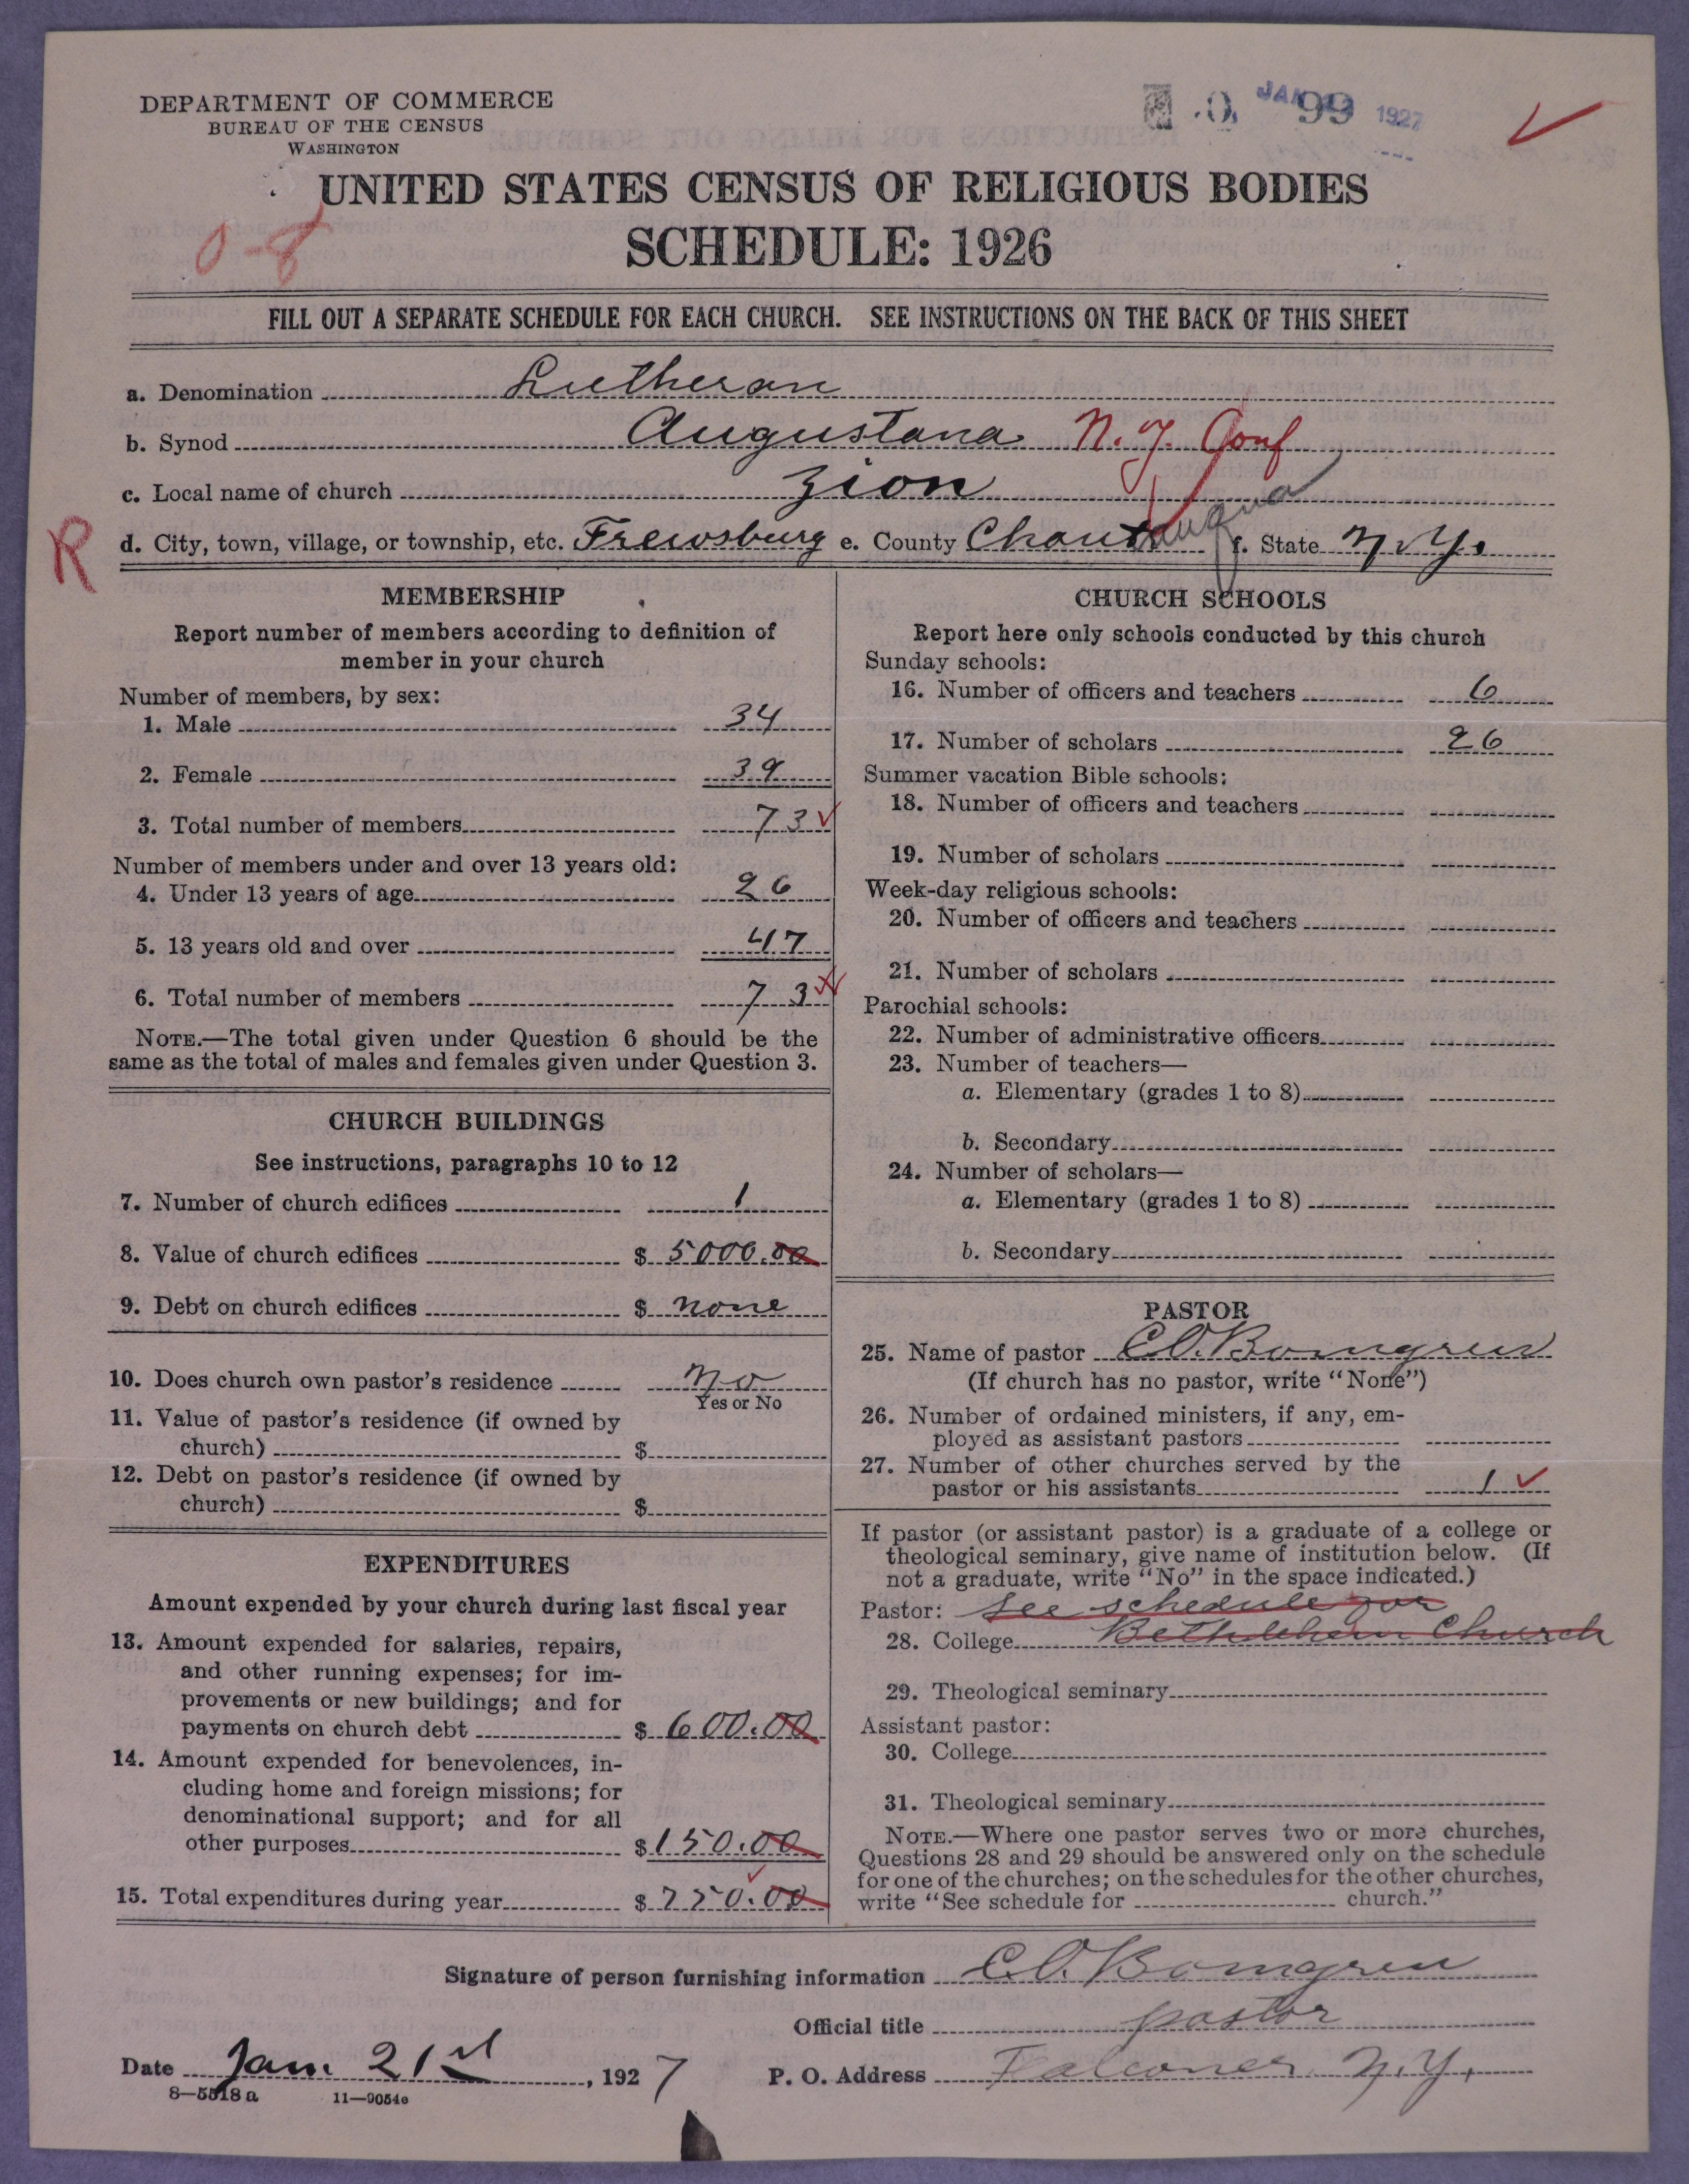 DEPARTMENT OF COMMERCE
BUREAU OF THE CENSUS
WASHINGTON
JAN 1927
99
UNITED STATES CENSUS OF RELIGIOUS BODIES
0-8
SCHEDULE: 1926
FILL OUT A SEPARATE SCHEDULE FOR EACH CHURCH. SEE INSTRUCTIONS ON THE BACK OF THIS SHEET
a. Denomination Lutheran
b. Synod Augustana N.Y. Conf
c. Local name of church Zion
R
d. City, town, village, or township, etc. Frewsburg e. County Chautauqua f. State N.Y.
MEMBERSHIP
Report number of members according to definition of
member in your church
Number of members, by sex:
1. Male 34
2. Female 39
3. Total number of members 73
Number of members under and over 13 years old:
4. Under 13 years of age 26
5. 13 years old and over 47
6. Total number of members 73
NOTE.—The total given under Question 6 should be the
same as the total of males and females given under Question 3.
CHURCH BUILDINGS
See instructions, paragraphs 10 to 12
7. Number of church edifices 1
8. Value of church edifices $ 5000.00
9. Debt on church edifices $ none
10. Does church own pastor's residence No
Yes or No
11. Value of pastor's residence (if owned by
church) $
12. Debt on pastor's residence (if owned by
church) $
EXPENDITURES
Amount expended by your church during last fiscal year
13. Amount expended for salaries, repairs,
and other running expenses; for im-
provements or new buildings; and for
payments on church debt $ 600.00
14. Amount expended for benevolences, in-
cluding home and foreign missions; for
denominational support; and for all
other purposes $ 150.00
15. Total expenditures during year $ 750.00
CHURCH SCHOOLS
Report here only schools conducted by this church
Sunday schools:
16. Number of officers and teachers 6
17. Number of scholars 26
Summer vacation Bible schools:
18. Number of officers and teachers
19. Number of scholars
Week-day religious schools:
20. Number of officers and teachers
21. Number of scholars
Parochial schools:
22. Number of administrative officers
23. Number of teachers—
a. Elementary (grades 1 to 8)
b. Secondary
24. Number of scholars—
a. Elementary (grades 1 to 8)
b. Secondary
PASTOR
25. Name of pastor C.O. Bomgren
(If church has no pastor, write "None")
26. Number of ordained ministers, if any, em-
ployed as assistant pastors
27. Number of other churches served by the
pastor or his assistants 1
If pastor (or assistant pastor) is a graduate of a college or
theological seminary, give name of institution below. (If
not a graduate, write "No" in the space indicated.)
Pastor: See schedule for
28. College Bethlehem Church
29. Theological seminary
Assistant pastor:
30. College
31. Theological seminary
NOTE.—Where one pastor serves two or more churches,
Questions 28 and 29 should be answered only on the schedule
for one of the churches; on the schedules for the other churches,
write "See schedule for church."
Signature of person furnishing information C.O. Bomgren
Official title pastor
Date Jan. 21st, 1927 P. O. Address Falconer N.Y.
8—5518 a 11—9054e